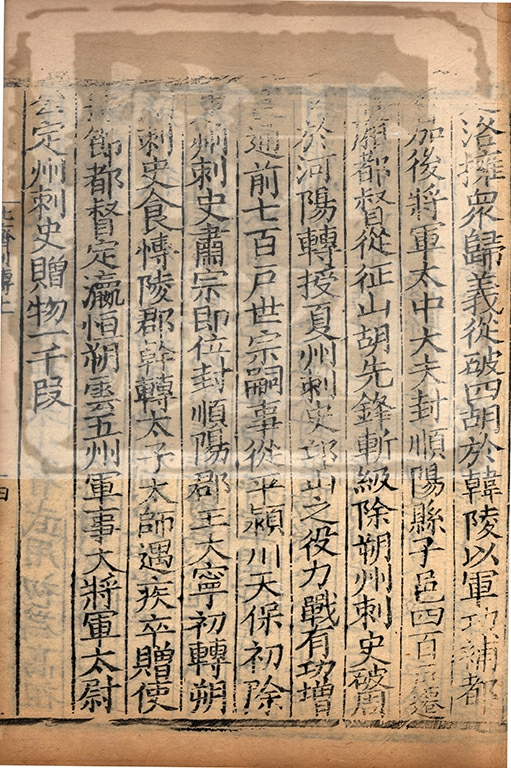 洛擁衆歸義從破四胡於韓陵以軍功補都
加後將軍太中大夫封順陽縣子邑四百戶遷
都督從征山胡先鋒斬級除朔州刺史破周
於河陽轉授夏州刺史邙山之役力戰有功增
邑通前七百戶世宗嗣事從平潁川天保初除
州刺史肅宗即位封順陽郡王大寧初轉朔
刺史食愽陵郡幹轉太子太師遇疾卒贈使
節都督定瀛恒朔雲五州軍事大將軍太尉
公定州刺史贈物一千段